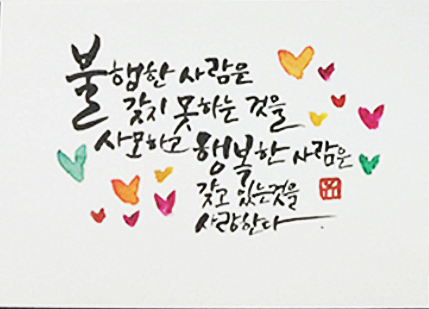 불행한 사람은
갖지 못하는 것을
사모하고 행복한 사람은
갖고 있는것을
사랑한다